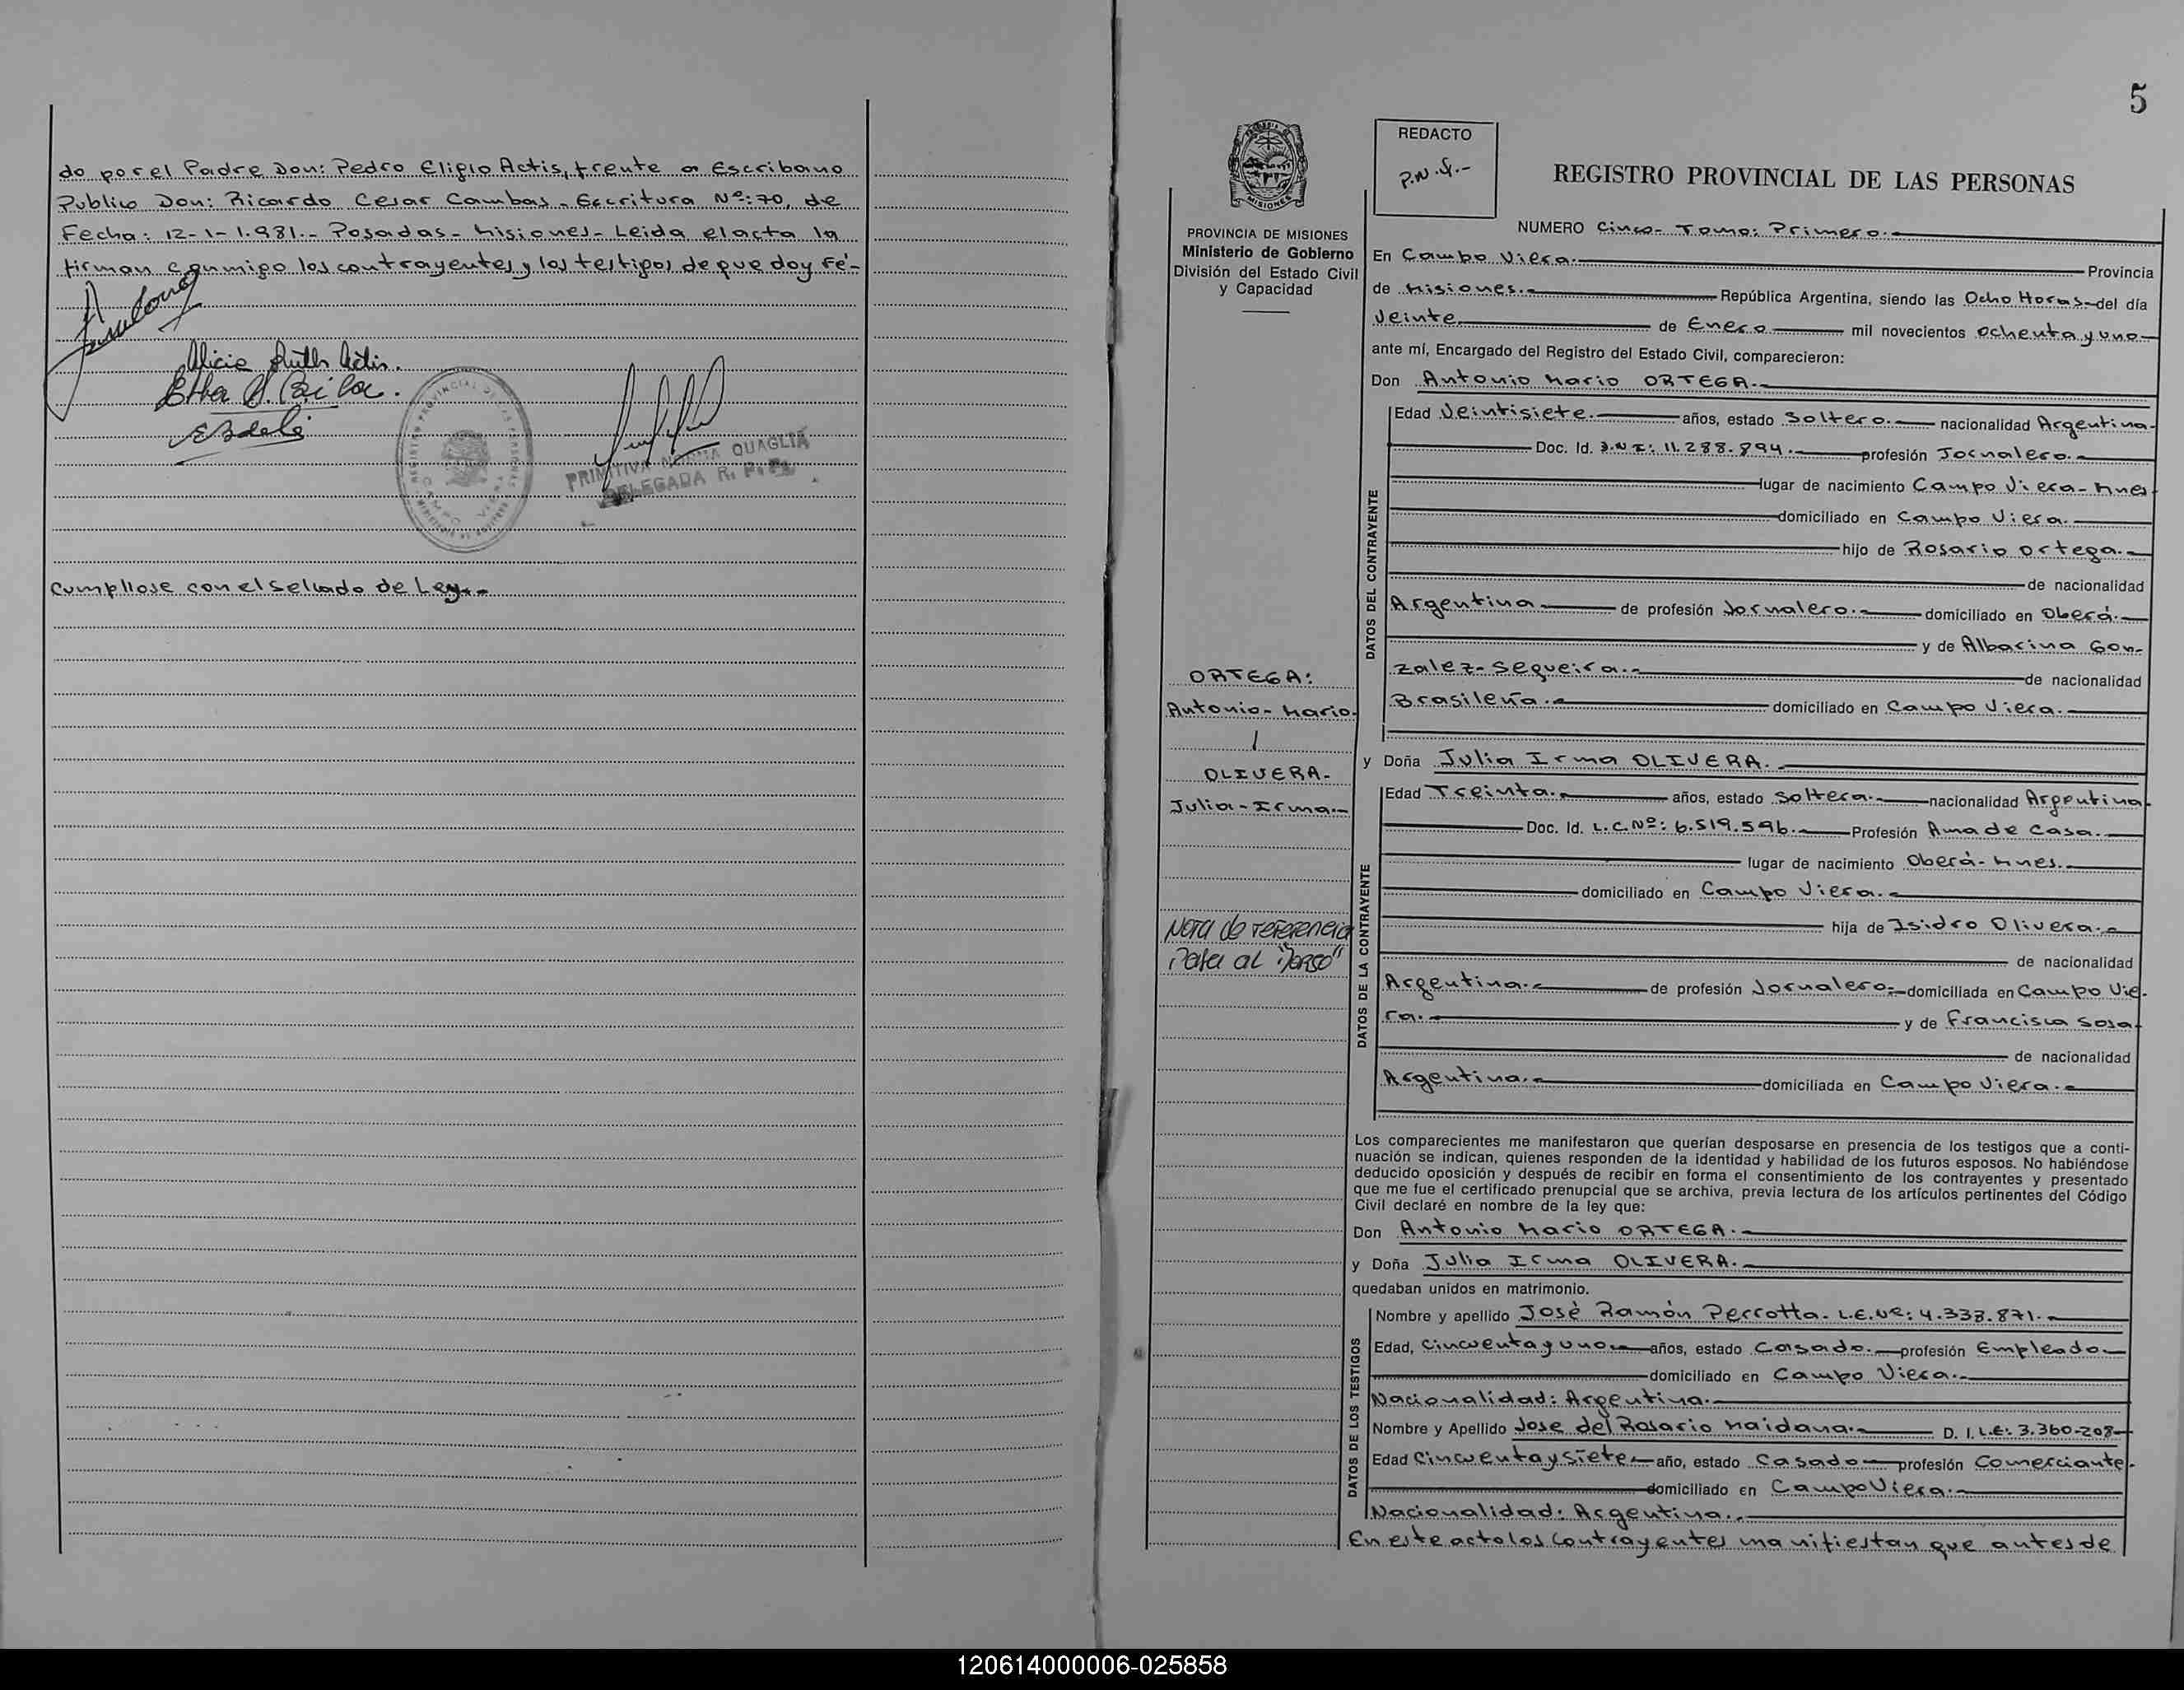 do por el Padre Don: Pedro Eligio Actis, frente a Escribano
Publico Don: Ricardo Cesar Cambas - Escritura Nº: 70, de
Fecha: 12-1-1.981.- Posadas - Misiones - Leida el acta la
firman conmigo los contrayentes y los testigos de que doy Fé-
Alicia Ruth Actis.
PRIMITIVA NORMA QUAGLIA
DELEGADA R. P. P.
Cumpliose con el sellado de Ley.-
5
REDACTO
P.N.Q.-
REGISTRO PROVINCIAL DE LAS PERSONAS
MISIONES
PROVINCIA DE MISIONES
Ministerio de Gobierno
División del Estado Civil
y Capacidad
NUMERO Cinco- Tomo: Primero.-
En Campo Viera.- Provincia
de Misiones.- República Argentina, siendo las Ocho Horas- del día
Veinte.- de Enero mil novecientos ochenta y uno-
ante mí, Encargado del Registro del Estado Civil, comparecieron:
Don Antonio Mario ORTEGA.-
DATOS DEL CONTRAYENTE
Edad Veintisiete.- años, estado Soltero.- nacionalidad Argentina-
Doc. Id. D.N.I: 11.288.894.- profesión Jornalero.-
lugar de nacimiento Campo Viera-Mnes-
domiciliado en Campo Viera.-
hijo de Rosario Ortega.-
de nacionalidad
Argentina- de profesión Jornalero.- domiciliado en Oberá.-
y de Albarina Gon-
zalez-Sequeira.- de nacionalidad
Brasileña.- domiciliado en Campo Viera.-
ORTEGA:
Antonio-Mario-
OLIVERA-
Julia-Irma.-
y Doña Julia Irma OLIVERA.-
DATOS DE LA CONTRAYENTE
Edad Treinta.- años, estado Soltera.- nacionalidad Argentina-
Doc. Id. L.C.Nº: 6.519.596.- Profesión Ama de Casa.-
lugar de nacimiento Oberá-Mnes.-
domiciliado en Campo Viera.-
hija de Isidro Olivera.-
de nacionalidad
Argentina.- de profesión Jornalero.- domiciliada en Campo Vie-
ra.- y de Francisca Sosa-
de nacionalidad
Argentina.- domiciliada en Campo Viera.-
Nota de referencia
Pasa al "Dorso"
Los comparecientes me manifestaron que querían desposarse en presencia de los testigos que a conti-
nuación se indican, quienes responden de la identidad y habilidad de los futuros esposos. No habiéndose
deducido oposición y después de recibir en forma el consentimiento de los contrayentes y presentado
que me fue el certificado prenupcial que se archiva, previa lectura de los artículos pertinentes del Código
Civil declaré en nombre de la ley que:
Don Antonio Mario ORTEGA.-
y Doña Julia Irma OLIVERA.-
quedaban unidos en matrimonio.
DATOS DE LOS TESTIGOS
Nombre y apellido José Ramón Perrotta- L.E.Nº: 4.333.871.-
Edad, Cincuenta y uno- años, estado Casado.- profesión Empleado-
domiciliado en Campo Viera.-
Nacionalidad: Argentina.-
Nombre y Apellido Jose del Rosario Maidana.- D. I. L.E: 3.360.208-
Edad Cincuenta y siete- año, estado Casado- profesión Comerciante-
domiciliado en Campo Viera.-
Nacionalidad: Argentina.-
En este acto los contrayentes manifiestan que antes de
120614000006-025858